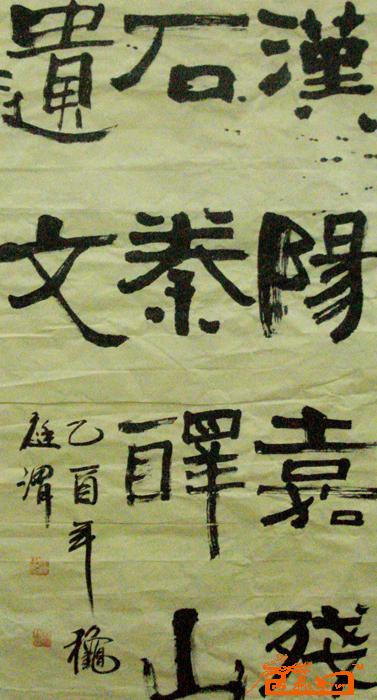 漢陽嘉殘
石秦醳山
遺文
乙酉年龝
庭渭